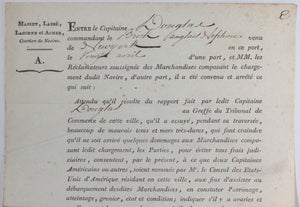 MAGINT, LABBÉ,
LABURTE ET ACHER,
Courtiers de Navires.
A.
ENTRE le Capitaine Douglas
commandant le Brick anglais venu
de Newyork en ce port,
le avril d'une part, et MM. les
Réclamateurs soussignés des Marchandises composant le chargement
dudit Navire, d'autre part, il a été convenu et arrêté ce qui
suit :
Attendu qu'il résulte du rapport fait par ledit Capitaine
Douglas au Greffe du Tribunal de
Commerce de cette ville, qu'il a essuyé, pendant sa traversée,
beaucoup de mauvais tems et mers très-dures, qui font craindre
qu'il en soit arrivé quelques dommages aux Marchandises composant
ledit chargement, les Parties, pour éviter tous frais judiciaires,
consentent, par le présent, à ce que deux Capitaines
Américains ou autres, soient nommés par M. le Consul des États-
Unis d'Amérique résident en cette ville, aux fins d'assister au
débarquement desdites Marchandises, en constater l'arrimage,
atteintage, grenier, état et condition, indiquer s'il y a avaries et